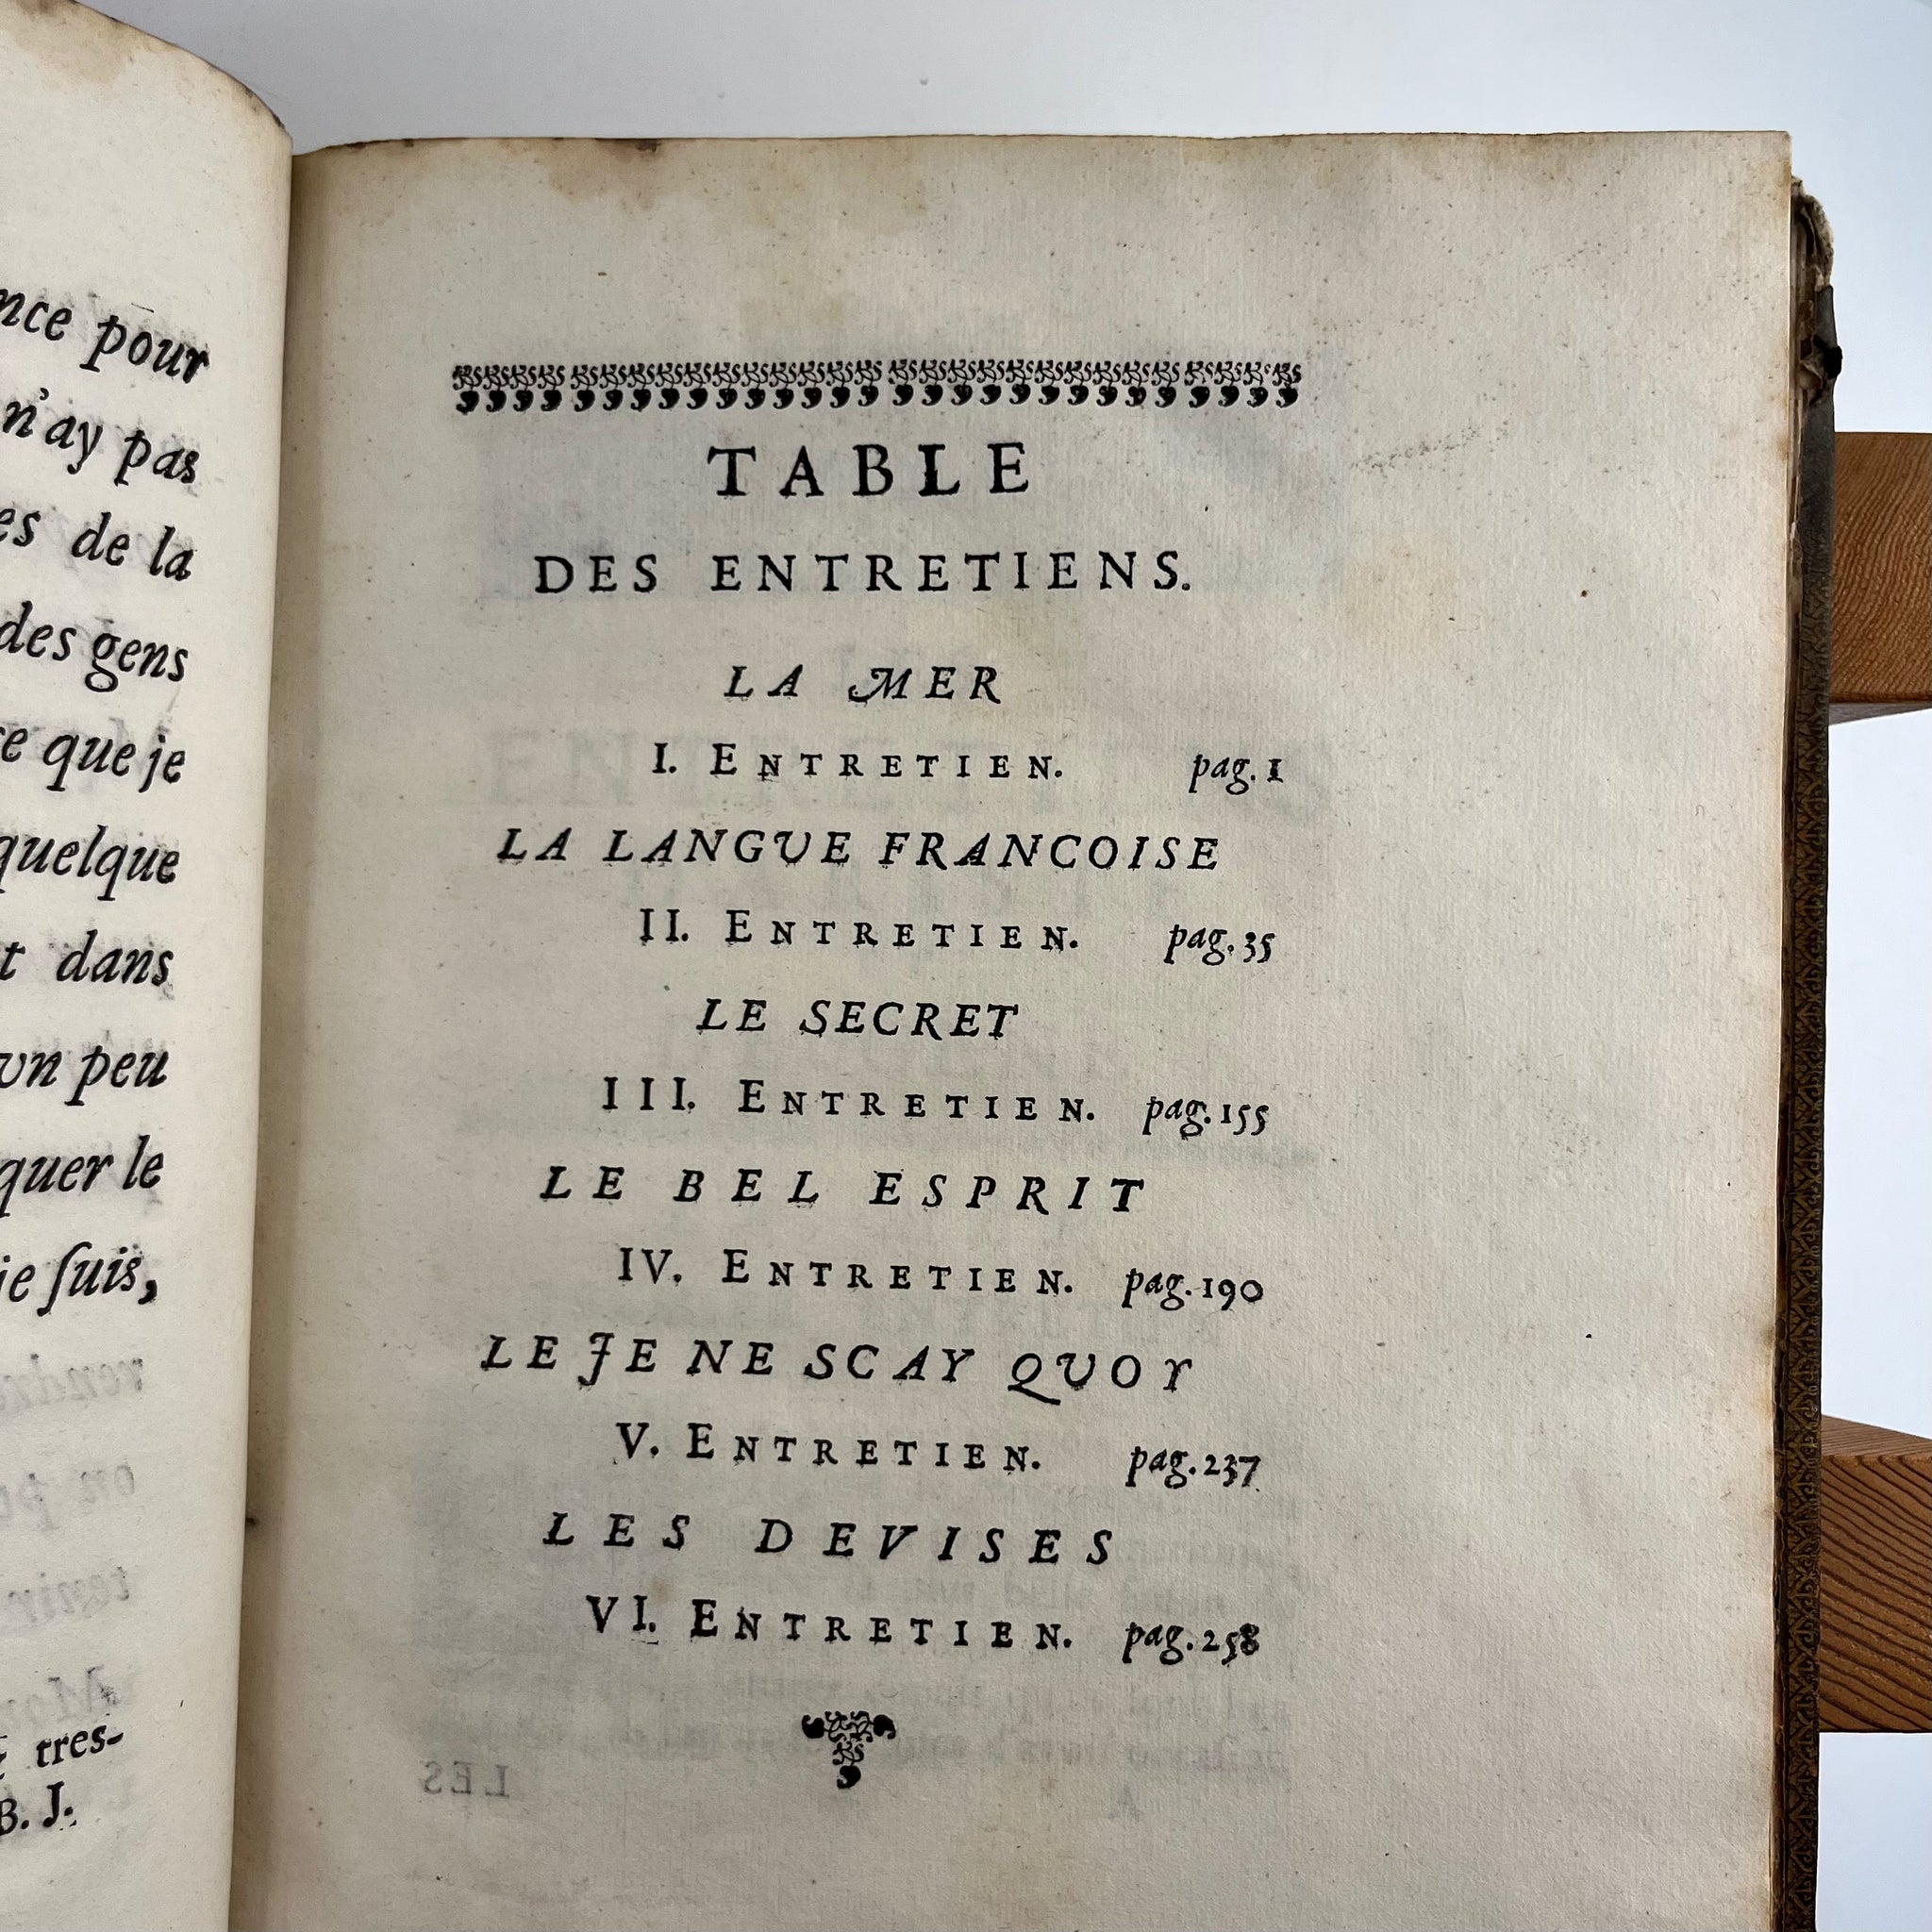 nce pour
n'ay pas
es de la
des gens
que je
quelque
t dans
vn peu
quer le
je ſuis,
tres-
B. J.
TABLE
DES ENTRETIENS.
LA MER
I. ENTRETIEN. pag. 1
LA LANGVE FRANCOISE
II. ENTRETIEN. pag. 35
LE SECRET
III. ENTRETIEN. pag. 155
LE BEL ESPRIT
IV. ENTRETIEN. pag. 190
LE JE NE SCAY QVOY
V. ENTRETIEN. pag. 237
LES DEVISES
VI. ENTRETIEN. pag. 258